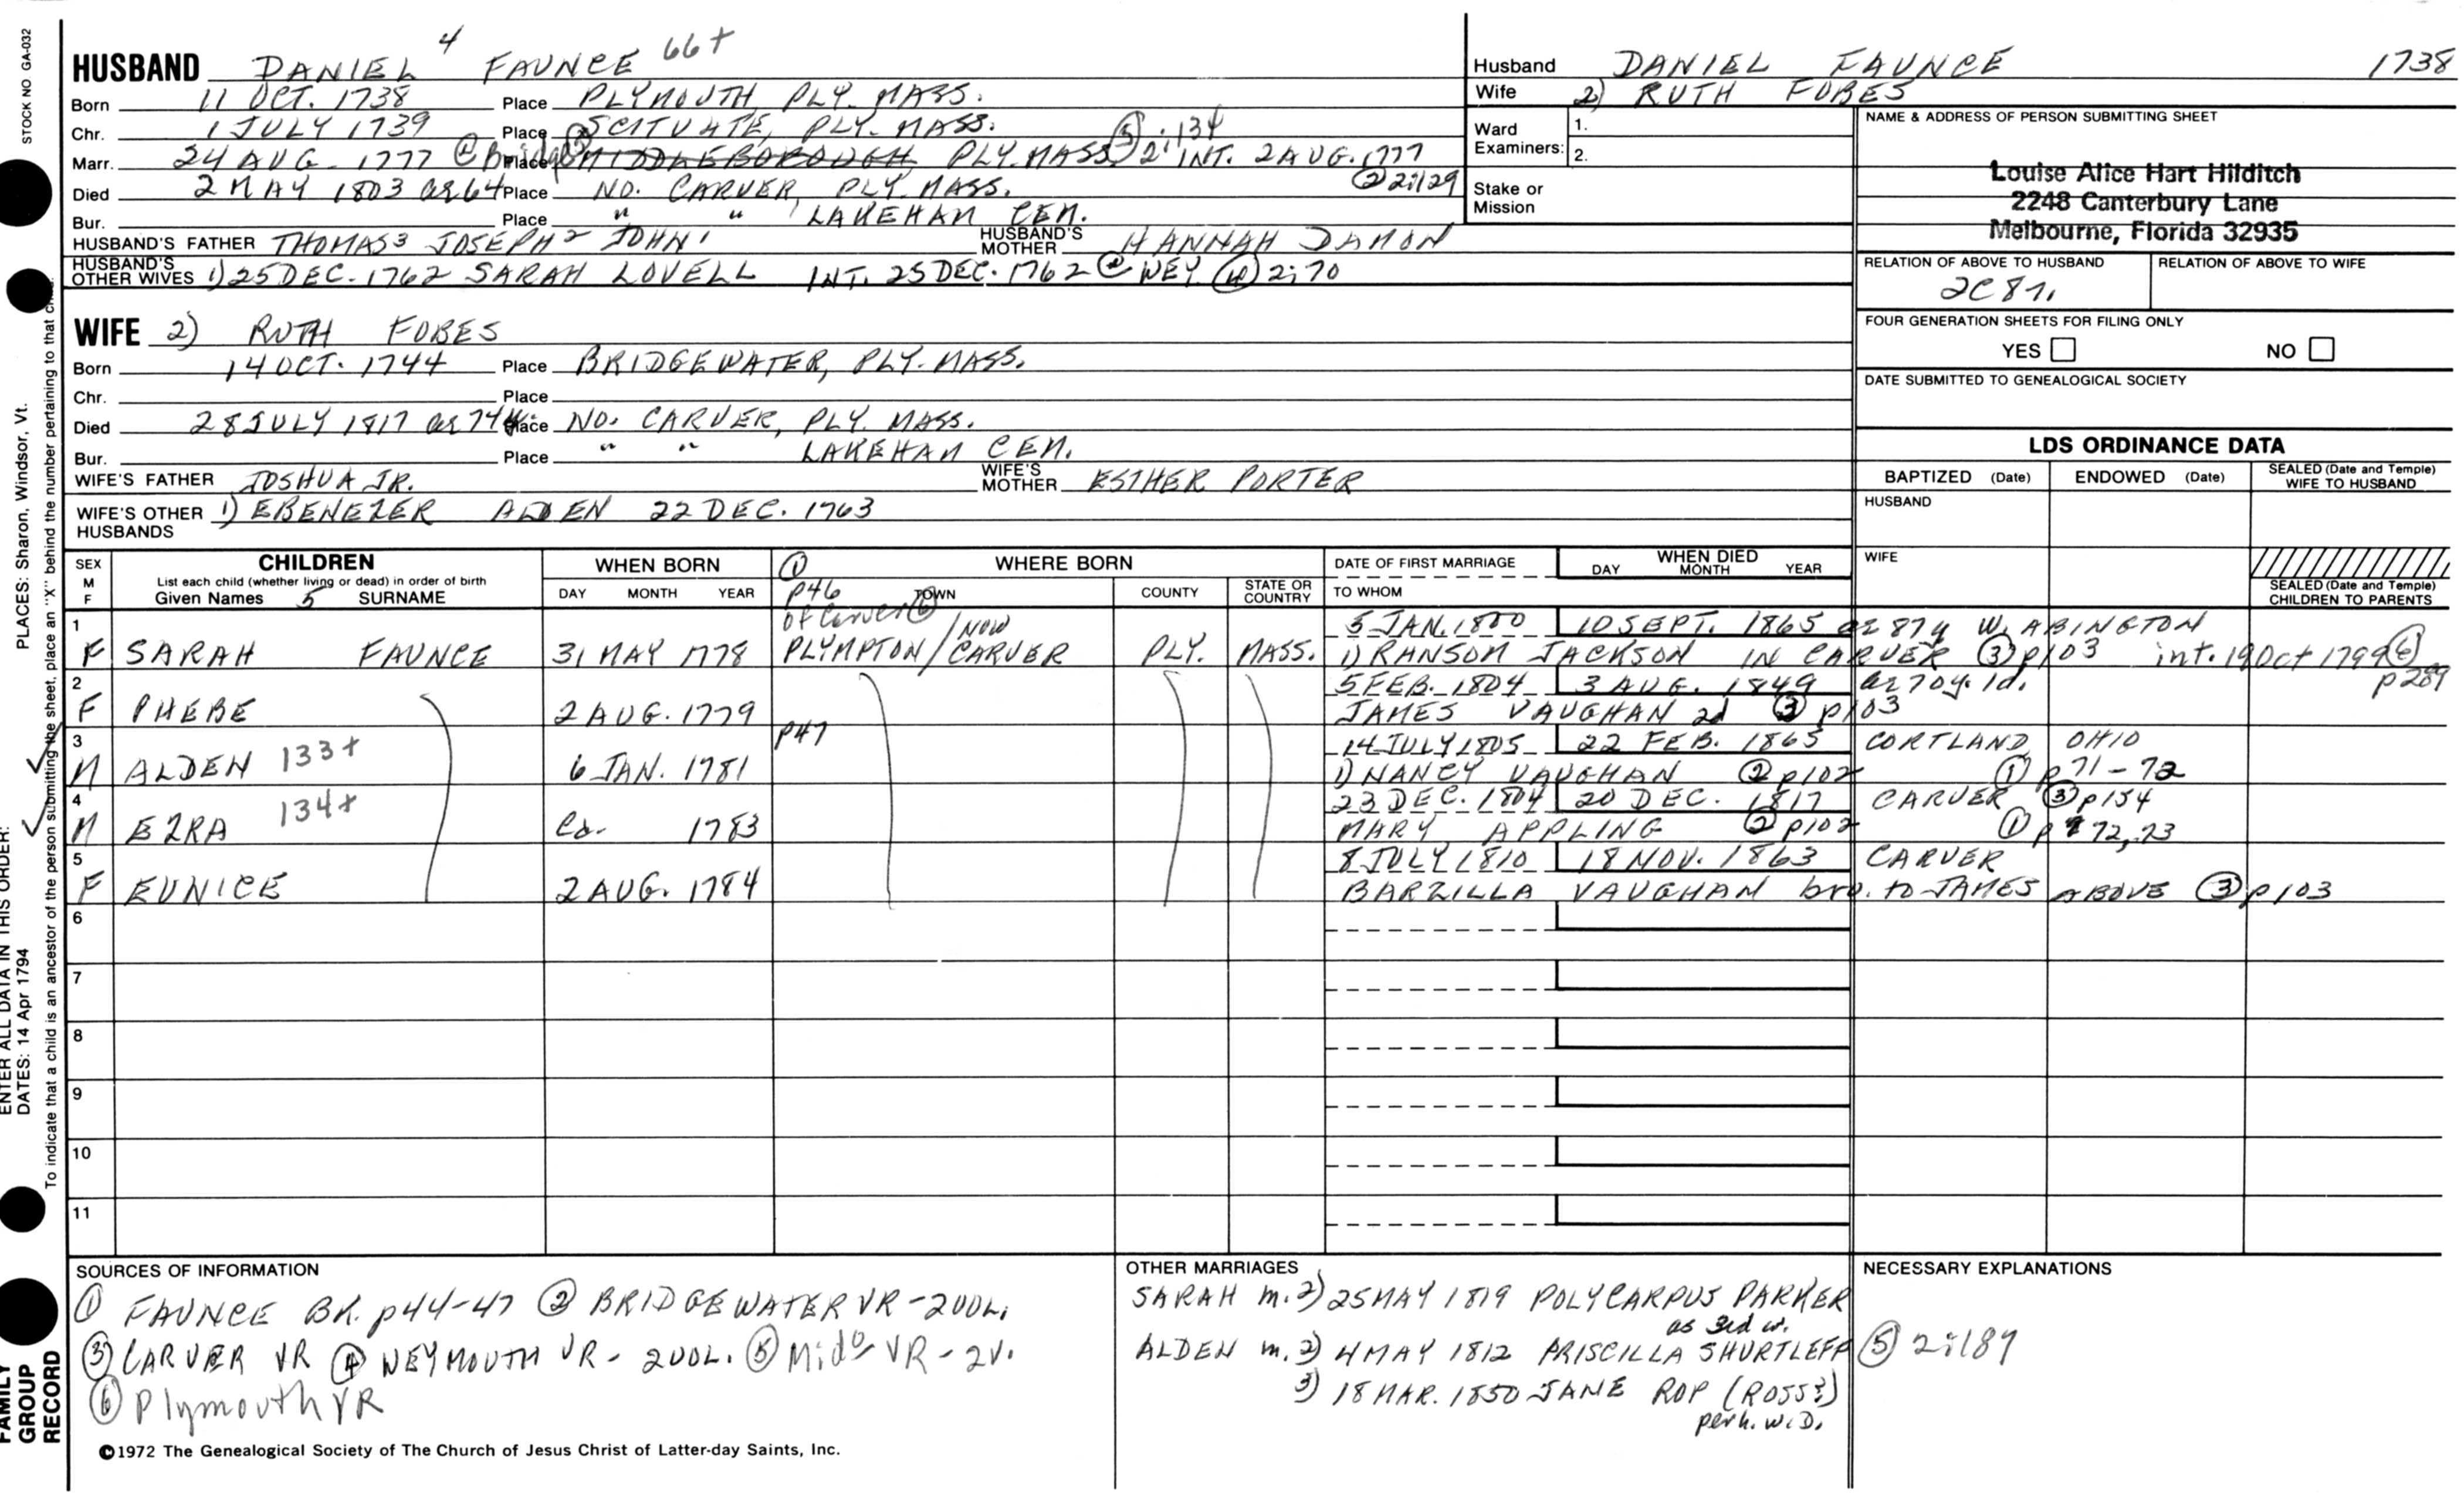 STOCK NO GA-032
PLACES: Sharon, Windsor, Vt.
ENTER ALL DATA IN THIS ORDER:
DATES: 14 Apr 1794
To indicate that a child is an ancestor of the person submitting the sheet, place an "X" behind the number pertaining to that child.
FAMILY GROUP RECORD
HUSBAND DANIEL 4 FAUNCE 66+
Born 11 OCT. 1738 Place PLYMOUTH, PLY. MASS.
Chr. 1 JULY 1739 Place SCITUATE, PLY. MASS.
Marr. 24 AUG. 1777 @ Bridge Place ② MIDDLEBOROUGH PLY. MASS. ⑤ 2:134 2: INT. 2 AUG. 1777
② 2:129
Died 2 MAY 1803 ae 64 Place NO. CARVER, PLY. MASS.
Bur. Place " " LAKEHAM CEM.
HUSBAND'S FATHER THOMAS3 JOSEPH2 JOHN1 HUSBAND'S MOTHER HANNAH DAMON
HUSBAND'S OTHER WIVES 1) 25 DEC. 1762 SARAH LOVELL INT. 25 DEC. 1762 @ WEY. ④ 2:70
WIFE 2) RUTH FOBES
Born 14 OCT. 1744 Place BRIDGEWATER, PLY. MASS.
Chr. Place
Died 28 JULY 1817 ae 74 Place NO. CARVER, PLY. MASS.
Bur. Place " " LAKEHAM CEM.
WIFE'S FATHER JOSHUA JR. WIFE'S MOTHER ESTHER PORTER
WIFE'S OTHER HUSBANDS 1) EBENEZER ALDEN 22 DEC. 1763
Husband DANIEL FAUNCE 1738
Wife 2) RUTH FOBES
Ward Examiners: 1.
2.
Stake or Mission
NAME & ADDRESS OF PERSON SUBMITTING SHEET
Louise Alice Hart Hilditch
2248 Canterbury Lane
Melbourne, Florida 32935
RELATION OF ABOVE TO HUSBAND RELATION OF ABOVE TO WIFE
2C 8r.
FOUR GENERATION SHEETS FOR FILING ONLY
YES NO
DATE SUBMITTED TO GENEALOGICAL SOCIETY
LDS ORDINANCE DATA
BAPTIZED (Date) ENDOWED (Date) SEALED (Date and Temple) WIFE TO HUSBAND
HUSBAND
WIFE
SEALED (Date and Temple) CHILDREN TO PARENTS
SEX M F
CHILDREN
List each child (whether living or dead) in order of birth
Given Names 5 SURNAME
WHEN BORN
DAY MONTH YEAR
① WHERE BORN
p46 TOWN COUNTY STATE OR COUNTRY
DATE OF FIRST MARRIAGE
TO WHOM
WHEN DIED
DAY MONTH YEAR
of Carver ⑥
1 5 JAN. 1800 10 SEPT. 1865 ae 87y W. ABINGTON
F SARAH FAUNCE 31 MAY 1778 PLYMPTON / NOW CARVER PLY. MASS. 1) RANSOM JACKSON IN CARVER ③ p103 int. 19 Oct 1799 ⑥ p289
2 5 FEB. 1804 3 AUG. 1849 ae 70y. 1d.
F PHEBE 2 AUG. 1779 JAMES VAUGHAN 2d ③ p103
3 p47 14 JULY 1805 22 FEB. 1865 CORTLAND OHIO
M ALDEN 133+ 6 JAN. 1781 1) NANCY VAUGHAN ② p102 ① p71-72
4 23 DEC. 1804 20 DEC. 1817 CARVER ③ p154
M EZRA 134+ Ca. 1783 MARY APPLING ② p102 ① p 72, 73
5 8 JULY 1810 18 NOV. 1863 CARVER
F EUNICE 2 AUG. 1784 BARZILLA VAUGHAN bro. to JAMES ABOVE ③ p103
6
7
8
9
10
11
SOURCES OF INFORMATION
① FAUNCE BK. p44-47 ② BRIDGEWATER VR - 2VOL.
③ CARVER VR ④ WEYMOUTH VR - 2VOL. ⑤ Mido VR - 2V.
⑥ Plymouth VR
©1972 The Genealogical Society of The Church of Jesus Christ of Latter-day Saints, Inc.
OTHER MARRIAGES
SARAH m. 2) 25 MAY 1819 POLYCARPUS PARKER
as 3rd w.
ALDEN m. 2) 4 MAY 1812 PRISCILLA SHURTLEFF
3) 18 MAR. 1850 JANE ROP (ROSS?)
perh. wid.
NECESSARY EXPLANATIONS
⑤ 2:189